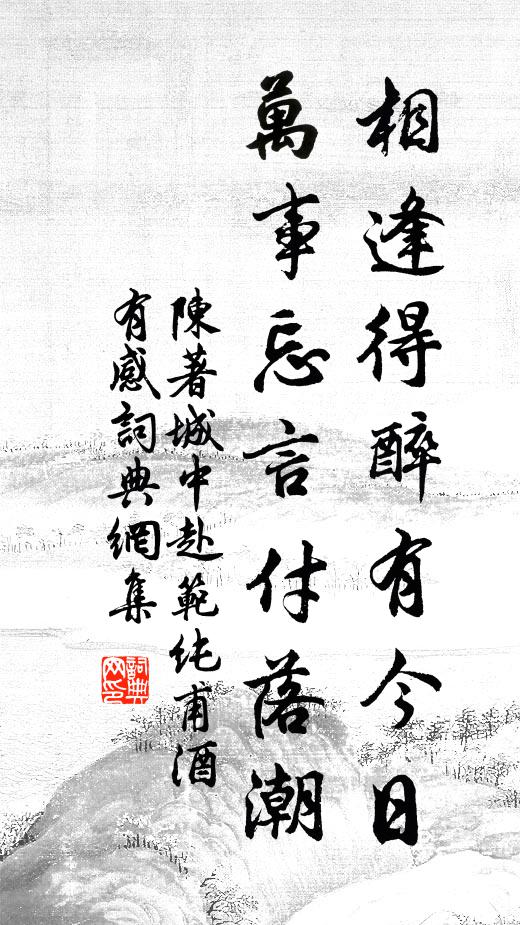 相逢得醉有今日
萬事忘言付落潮
陳著城中赴範純甫酒
有感詞典網集
詞典網印